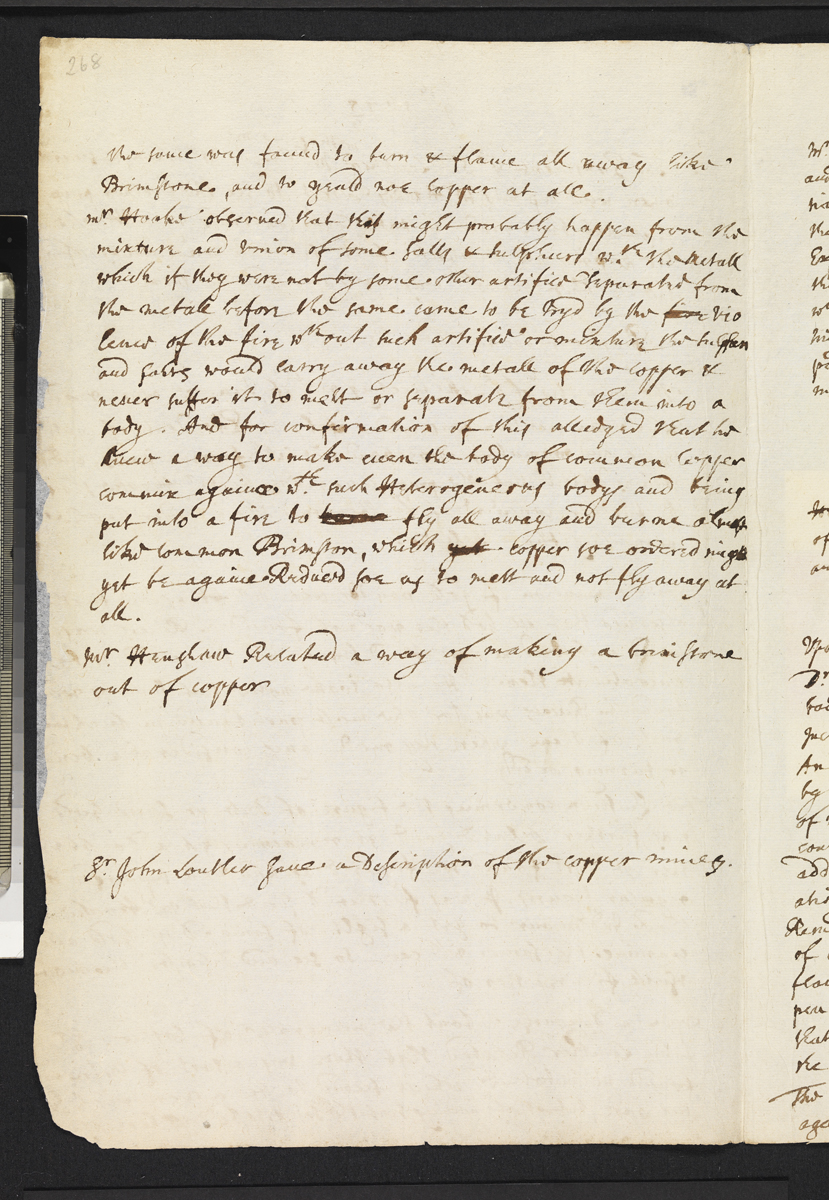 268
the same was found to burn & flame all away like
Brimstone, and to yeald noe Copper at all.
mr. Hooke observed that this might probably happen from the
mixture and union of some salts & sulphurs wth the metall
which if they were not by some other artifice separated from
the metall before the same came to be tryd by the fire vio
lence of the fire wthout such artifice or menstrue the sulphur
and salts would carry away the metall of the copper &
never suffer it to melt or separate from them into a
body. And for confirmation of this alledged that he
knew a way to make even the body of common Copper
commix againe wth such Heterogeneous bodys and being
put into a fire to fly all away and burne almost
like common Brimston, which yet copper soe ordered might
yet be againe Reduced soe as to melt and not fly away at
all.
mr. Henshaw Related a way of making a brimstone
out of copper
Sr. John Lowther gave a Description of the copper mines.
mr.
and
the
of
an
Dr
An
by
of
add
of
that
the
The